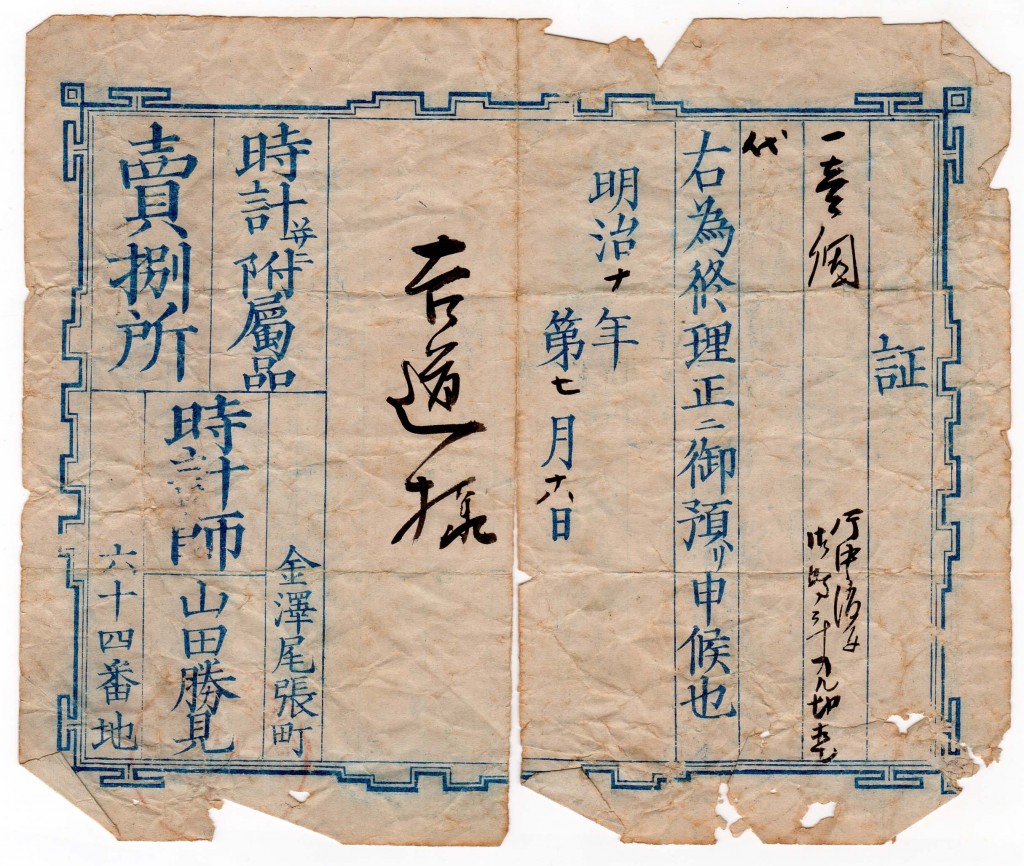 証
一壹個
代
右為修理正ニ御預リ申候也
明治十年
第七月十六日
吉道様
時計并ニ附屬品
賣捌所
金澤尾張町
時計師
山田勝見
六十四番地